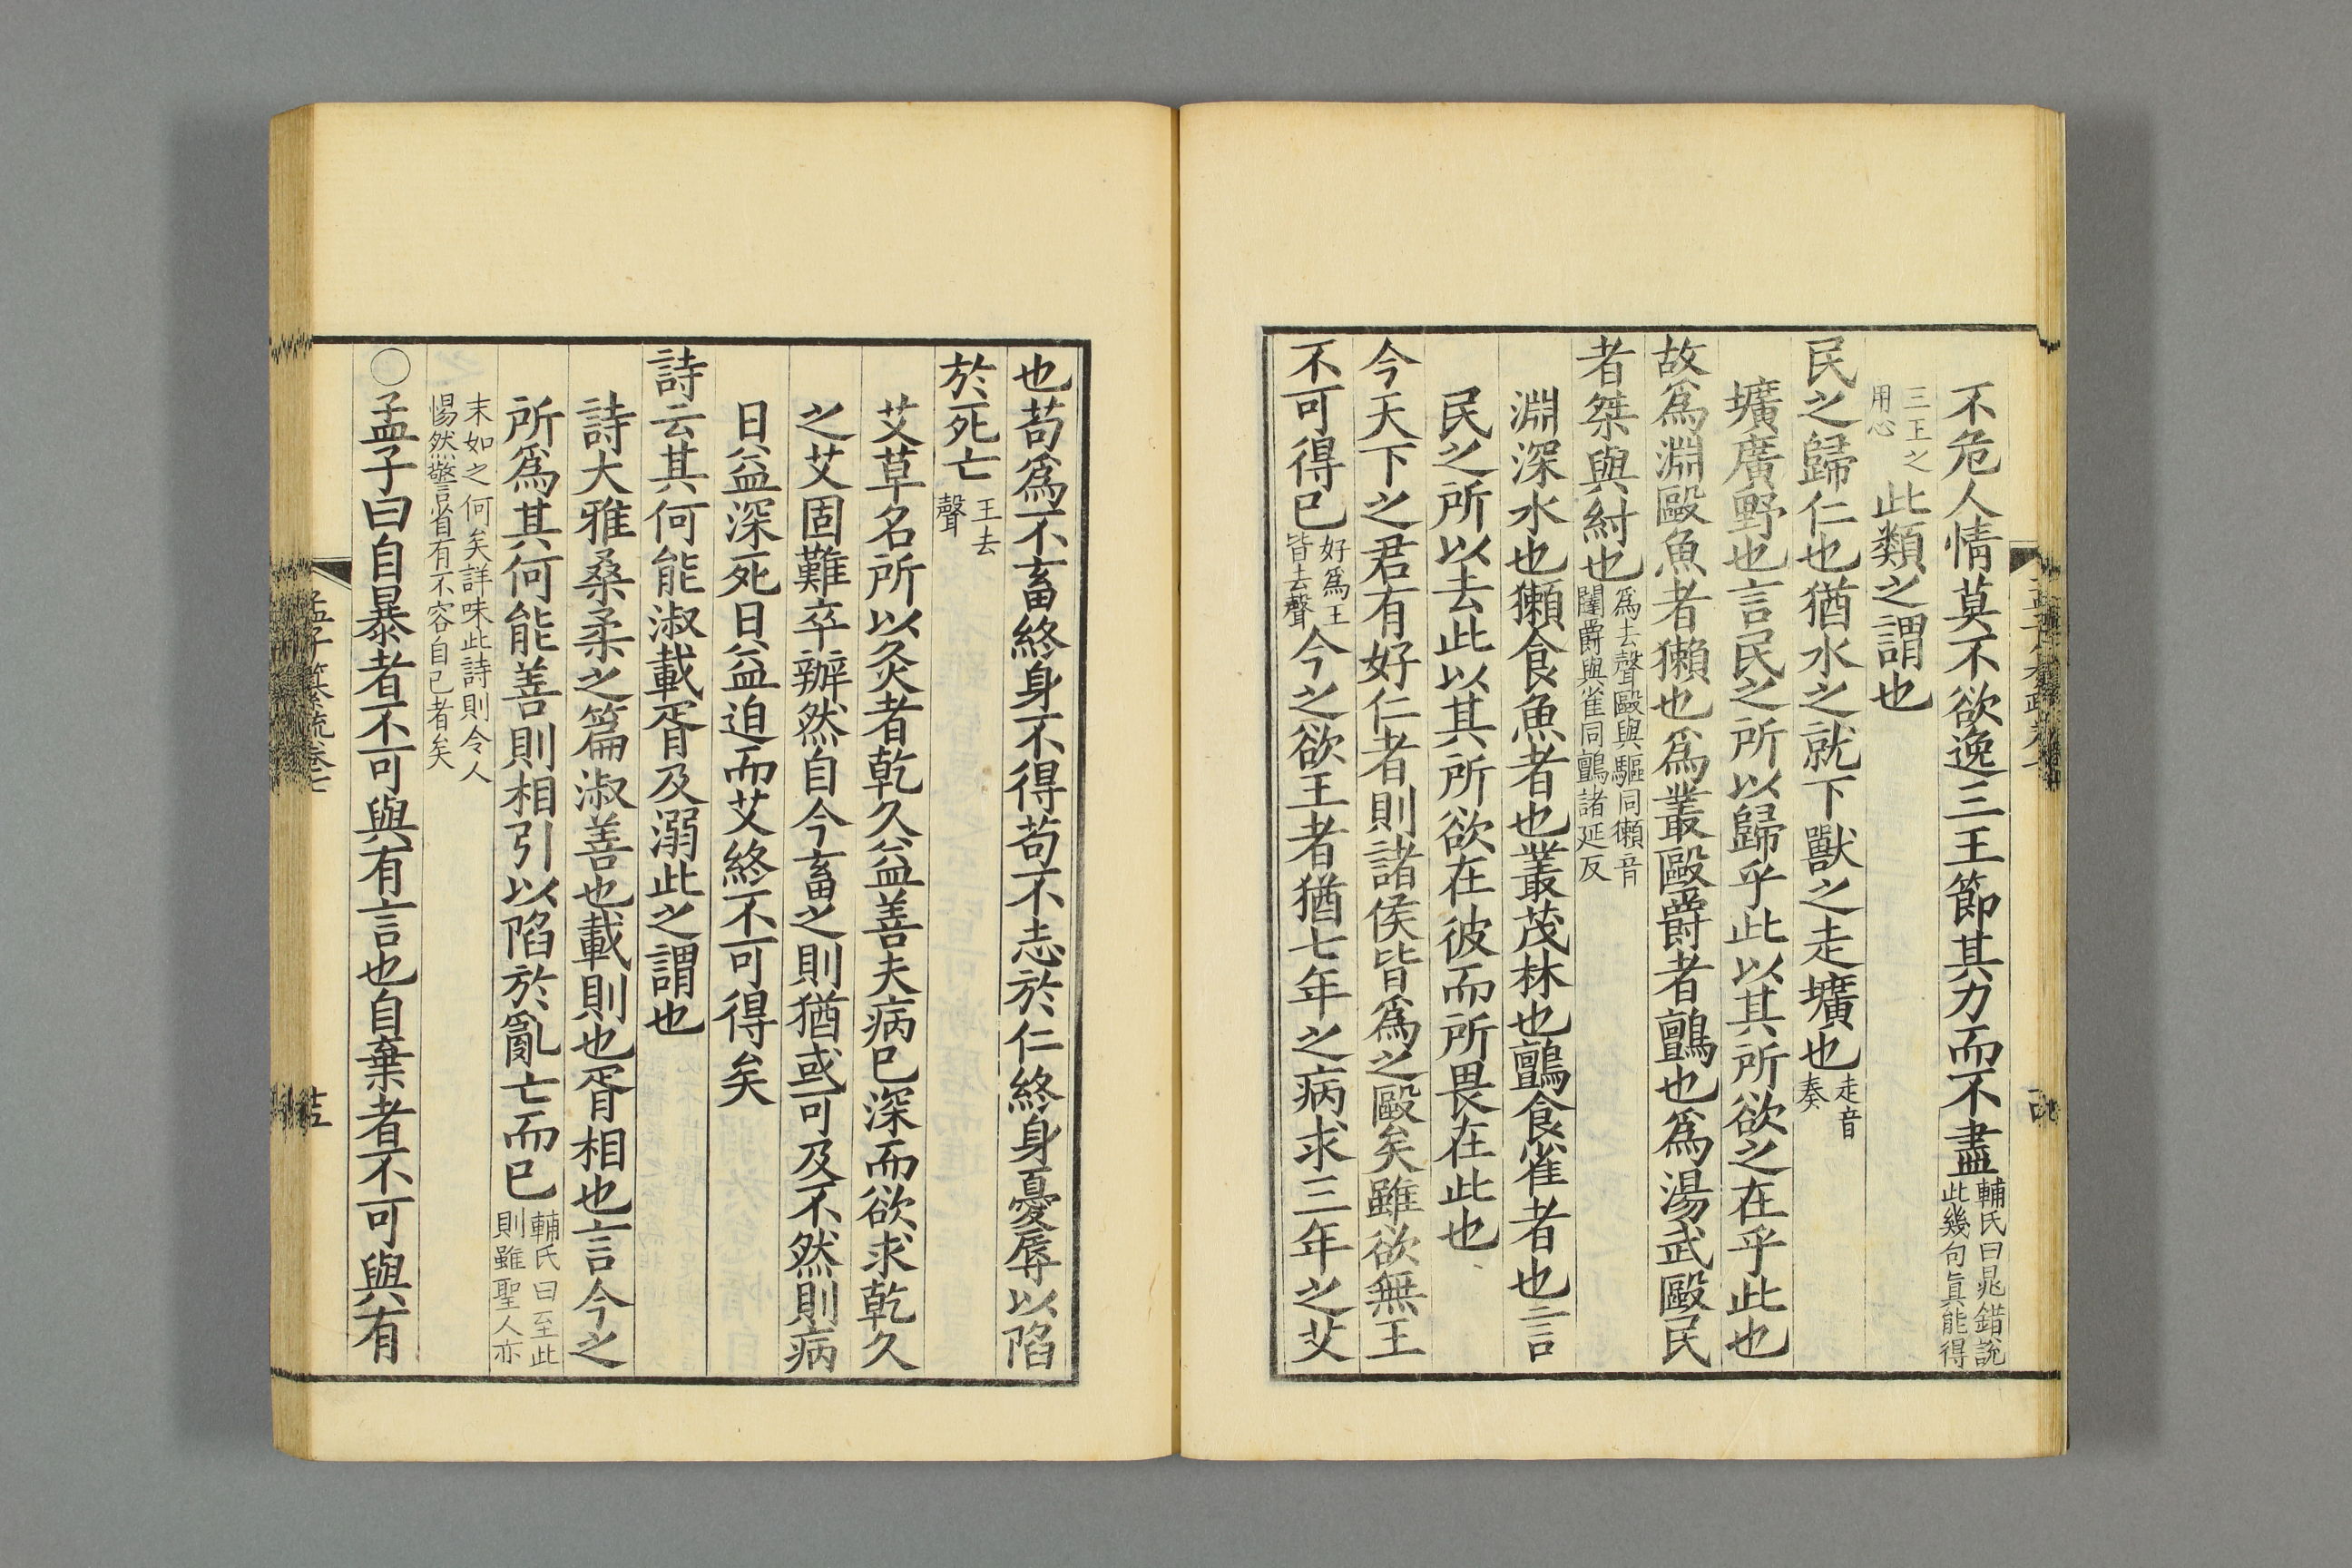 不危人情莫不欲逸三王節其力而不盡輔氏曰晁錯說此幾句真能得
三王之用心此類之謂也
民之歸仁也猶水之就下獸之走壙也走音奏
壙廣野也言民之所以歸乎此以其所欲之在乎此也
故爲淵毆魚者獺也爲叢毆爵者鸇也爲湯武毆民
者桀與紂也爲去聲毆與驅同獺音闥爵與雀同鸇諸延反
淵深水也獺食魚者也叢茂林也鸇食雀者也言
民之所以去此以其所欲在彼而所畏在此也
今天下之君有好仁者則諸侯皆爲之毆矣雖欲無王
不可得已好爲王皆去聲今之欲王者猶七年之病求三年之艾
也苟爲不畜終身不得苟不志於仁終身憂辱以陷
於死亡王去聲
艾草名所以灸者乾久益善夫病已深而欲求乾久
之艾固難卒辦然自今畜之則猶或可及不然則病
日益深死日益迫而艾終不可得矣
詩云其何能淑載胥及溺此之謂也
詩大雅桑柔之篇淑善也載則也胥相也言今之
所爲其何能善則相引以陷於亂亡而已輔氏曰至此則雖聖人亦
末如之何矣詳味此詩則令人惕然警省有不容自已者矣
○孟子曰自暴者不可與有言也自棄者不可與有
孟子纂疏卷七